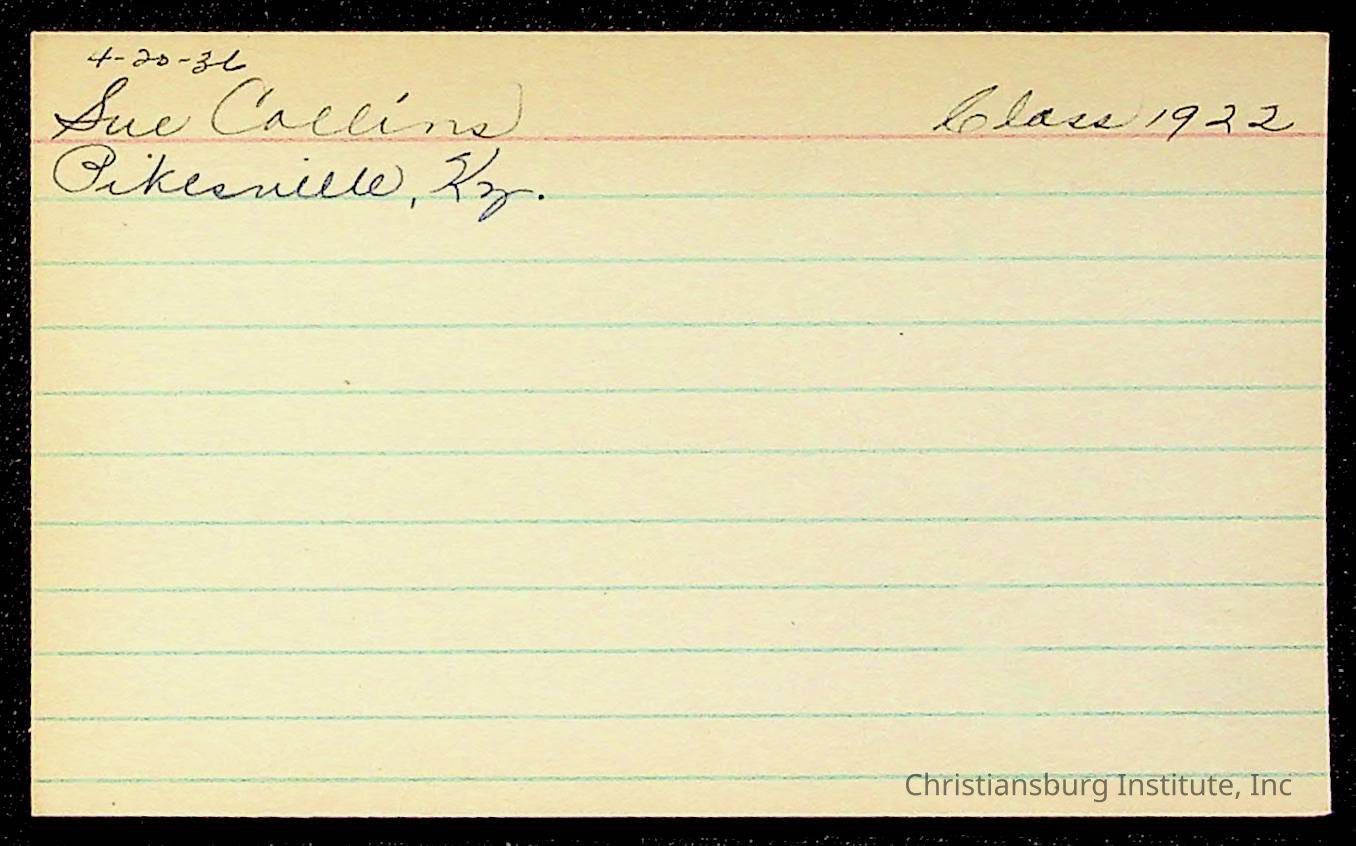 4-20-36
Sue Collins Class 1922
Pikesville, Ky.
Christiansburg Institute, Inc